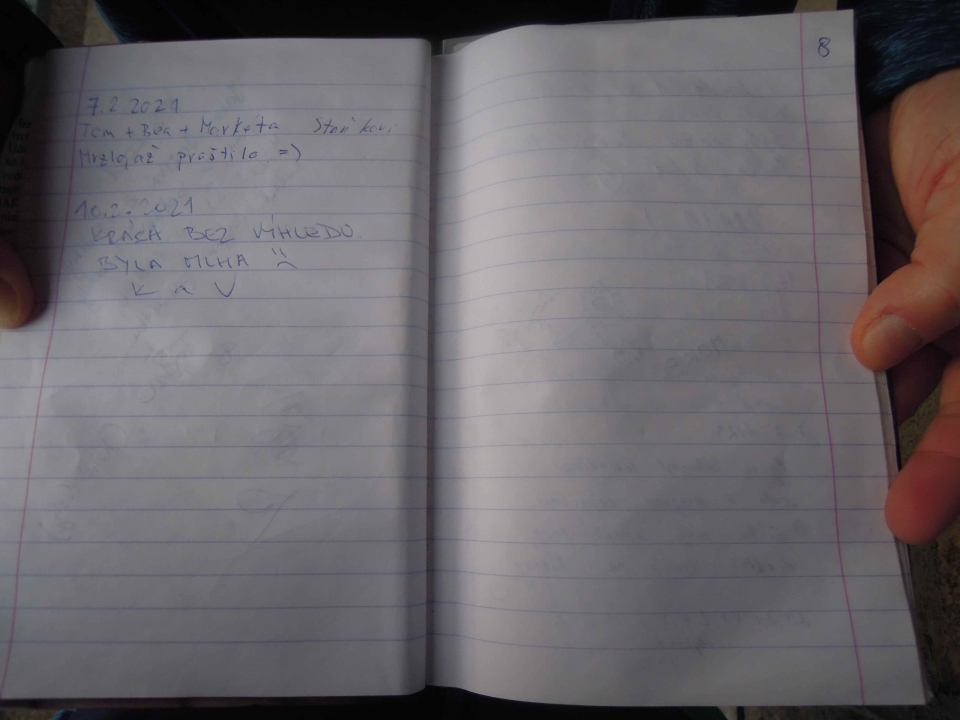 7.2.2021
Tom + Bea + Markéta
Mrzlo, až praštilo =)
10.2.2021
KRÁSA BEZ VÝHLEDU.
BYLA MLHA :(
K a V
8